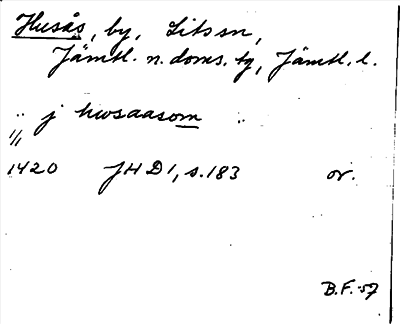 Husås, by, Litssn,
Jämtl. n. doms. tg, Jämtl. l.
„ j hwsaasom „
1/1
1420 JHD1, s.183 or.
B.F.-57